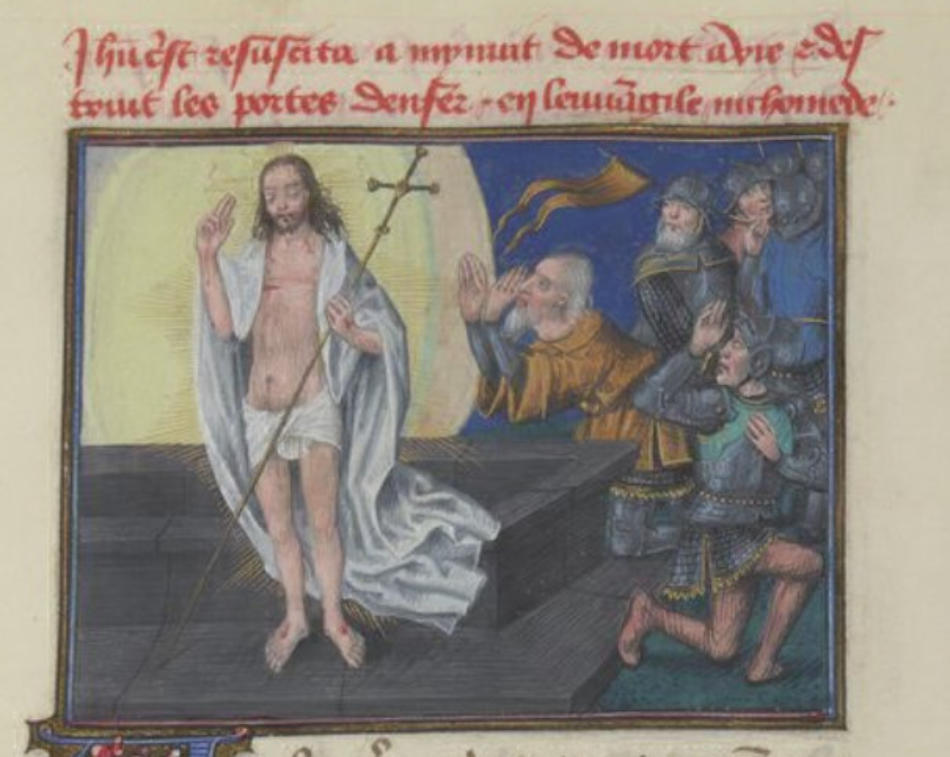 Jhūcr̄st resuscita a mynuit de mort a vie & des
truit les portes denfer . en leuuāgile nichomede .